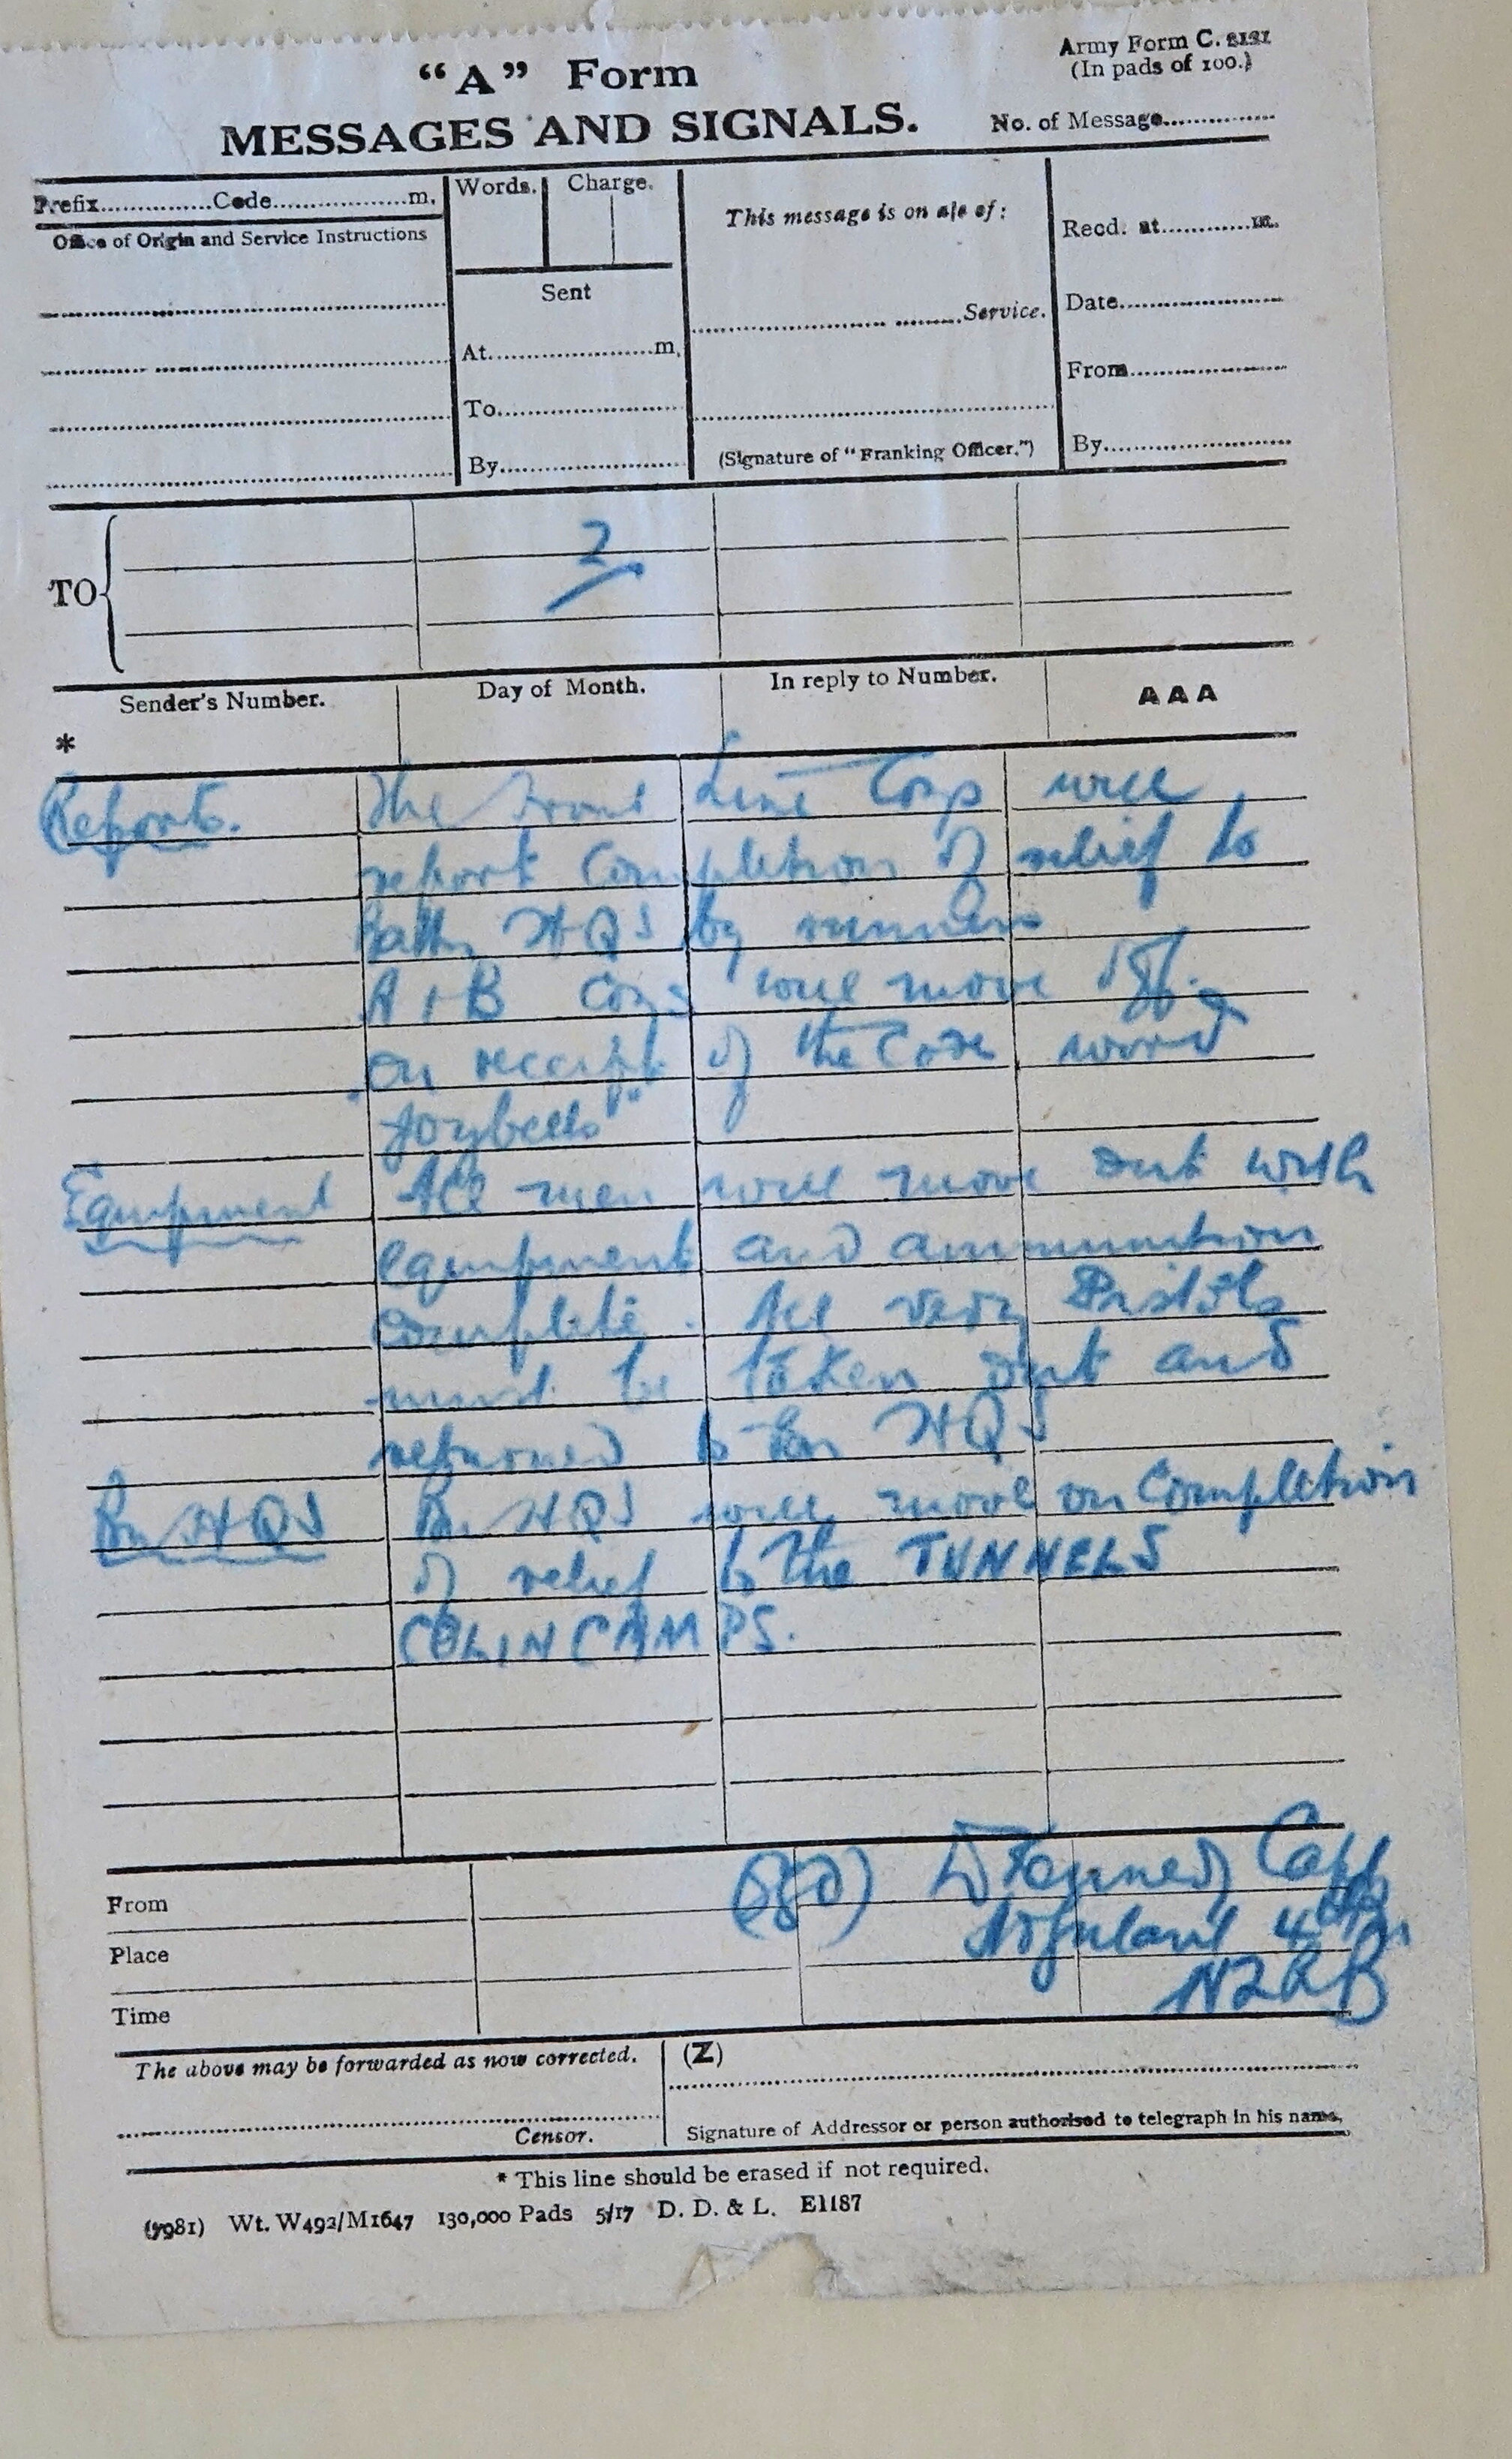 "A" Form
Army Form C. 2121
(In pads of 100.)
MESSAGES AND SIGNALS.
No. of Message
Prefix Code m.
Words. Charge.
This message is on a/c of:
Recd. at m.
Office of Origin and Service Instructions
Sent
Service.
Date
At m.
From
To
By
(Signature of "Franking Officer.")
By
TO
2
Sender's Number.
Day of Month.
In reply to Number.
AAA
*
Reports. The Front Line Coys will
report Completion of relief to
Battn HQS by runners
A + B Coys will move off
on receipt of the Code word
"Joybells"
Equipment All men will move out with
equipment and ammunition
complete. All very Pistols
must be taken out and
returned to Bn HQS
Bn HQS Bn HQS will move on Completion
of relief to the TUNNELS
COLINCAMPS.
From
(Sgd) Kennedy Capt
Place
Adjutant 4th Bn
NZRB
Time
The above may be forwarded as now corrected.
(Z)
Censor.
Signature of Addressor or person authorised to telegraph in his name.
* This line should be erased if not required.
(7981) Wt. W492/M1647 130,000 Pads 5/17 D. D. & L. E1187